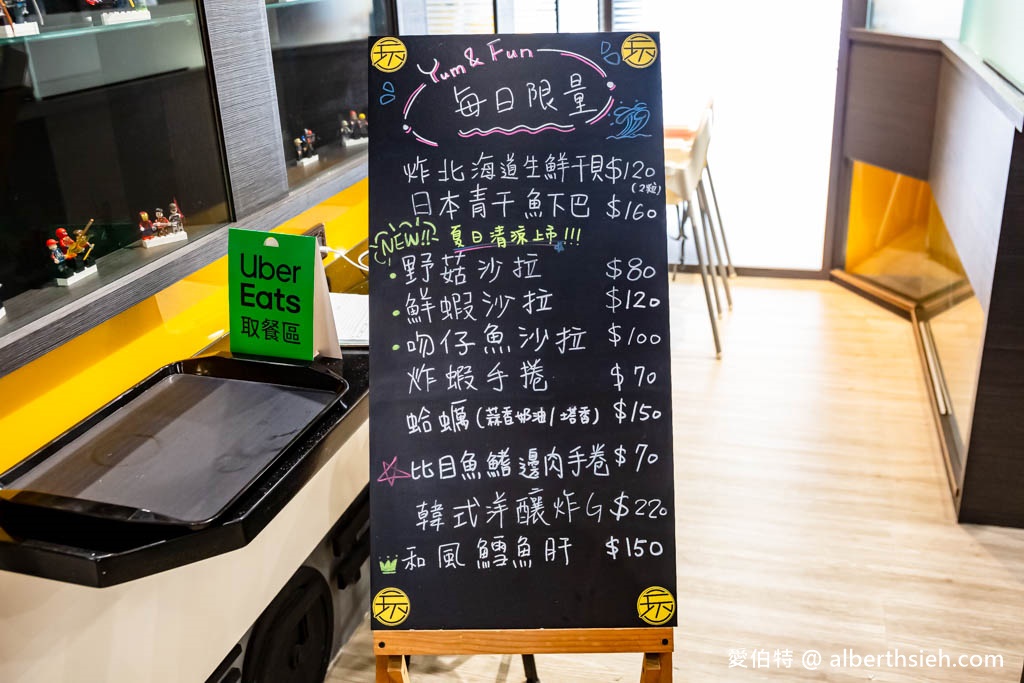 玩
玩
Yum & Fun
每日限量
炸北海道生鮮干貝 $120
(2粒)
日本青干魚下巴 $160
NEW!! 夏日清涼上市!!!
野菇沙拉 $80
鮮蝦沙拉 $120
吻仔魚沙拉 $100
炸蝦手捲 $70
蛤蠣(蒜香奶油/塔香) $150
比目魚鰭邊肉手卷 $70
韓式洋釀炸G $220
和風鱈魚肝 $150
玩
玩
Uber
Eats
取餐區
愛伯特 @ alberthsieh.com